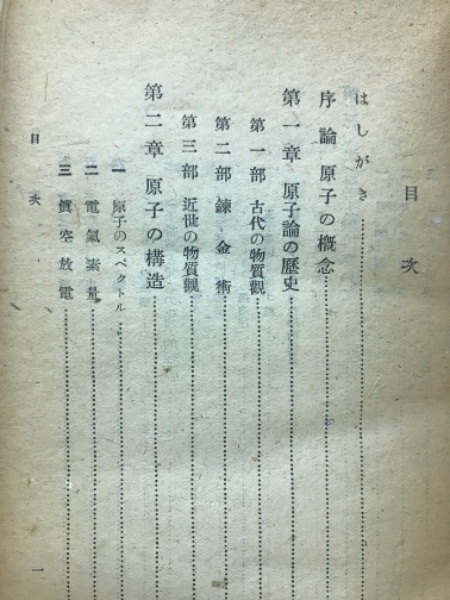 目次
はしがき
序論 原子の概念
第一章 原子論の歴史
第一部 古代の物質觀
第二部 錬金術
第三部 近世の物質觀
第二章 原子の構造
一 原子のスペクトル
二 電氣素量
三 眞空放電
目次
一